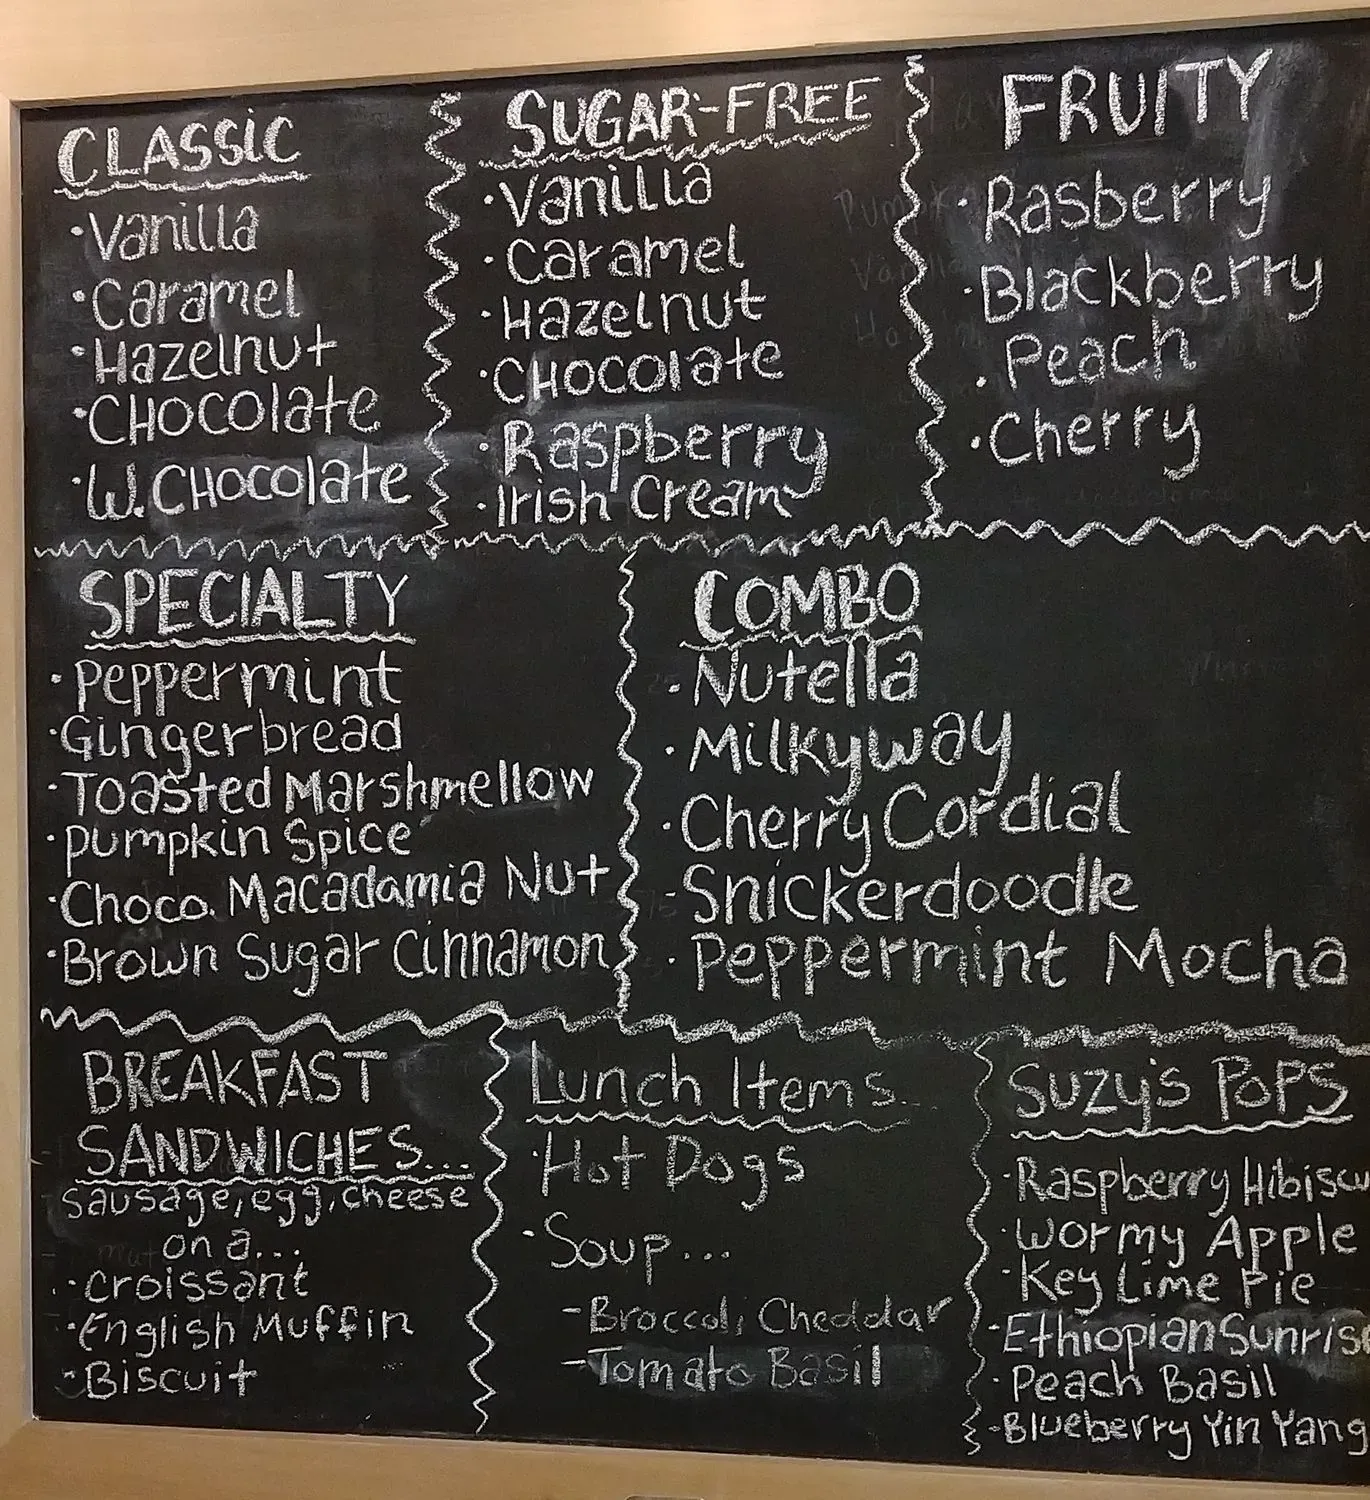 CLASSIC
·Vanilla
·Caramel
·Hazelnut
·CHOCOlate
·W.CHOCOlate
SUGAR-FREE
·Vanilla
·Caramel
·Hazelnut
·CHOCOlate
·Raspberry
·Irish Cream
FRUITY
·Rasberry
·Blackberry
·Peach
·Cherry
SPECIALTY
·Peppermint
·Gingerbread
·Toasted Marshmellow
·Pumpkin Spice
·Choco. Macadamia Nut
·Brown Sugar Cinnamon
COMBO
·Nutella
·Milkyway
·Cherry Cordial
·Snickerdoodle
·Peppermint Mocha
BREAKFAST
SANDWICHES...
Sausage, egg, cheese
on a...
·Croissant
·English Muffin
·Biscuit
Lunch Items..
·Hot Dogs
·Soup...
-Broccoli Cheddar
-Tomato Basil
SUZY'S POPS
·Raspberry Hibiscu
·Wormy Apple
·Key Lime Pie
·Ethiopian Sunris
·Peach Basil
·Blueberry Yin Yang